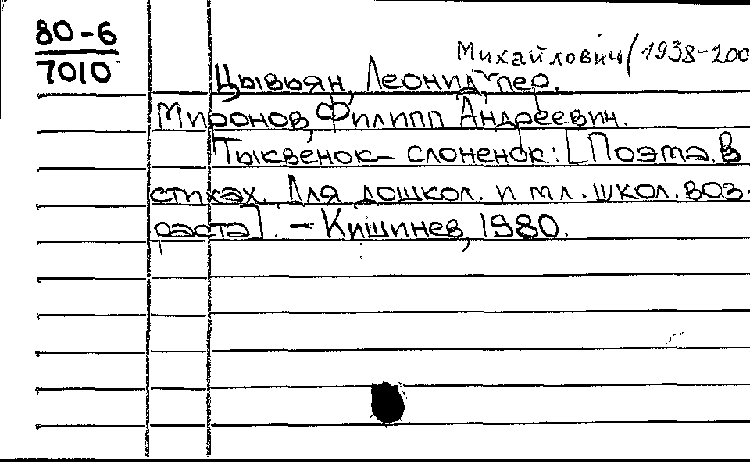 80-6
7010
Михайлович (1938-200
Цывьян, Леонид, пер.
Миронов, Филипп Андреевич.
Тыквенок-слоненок: [Поэма в
стихах. Для дошкол. и мл. школ. воз-
раста]. - Кишинев, 1980.